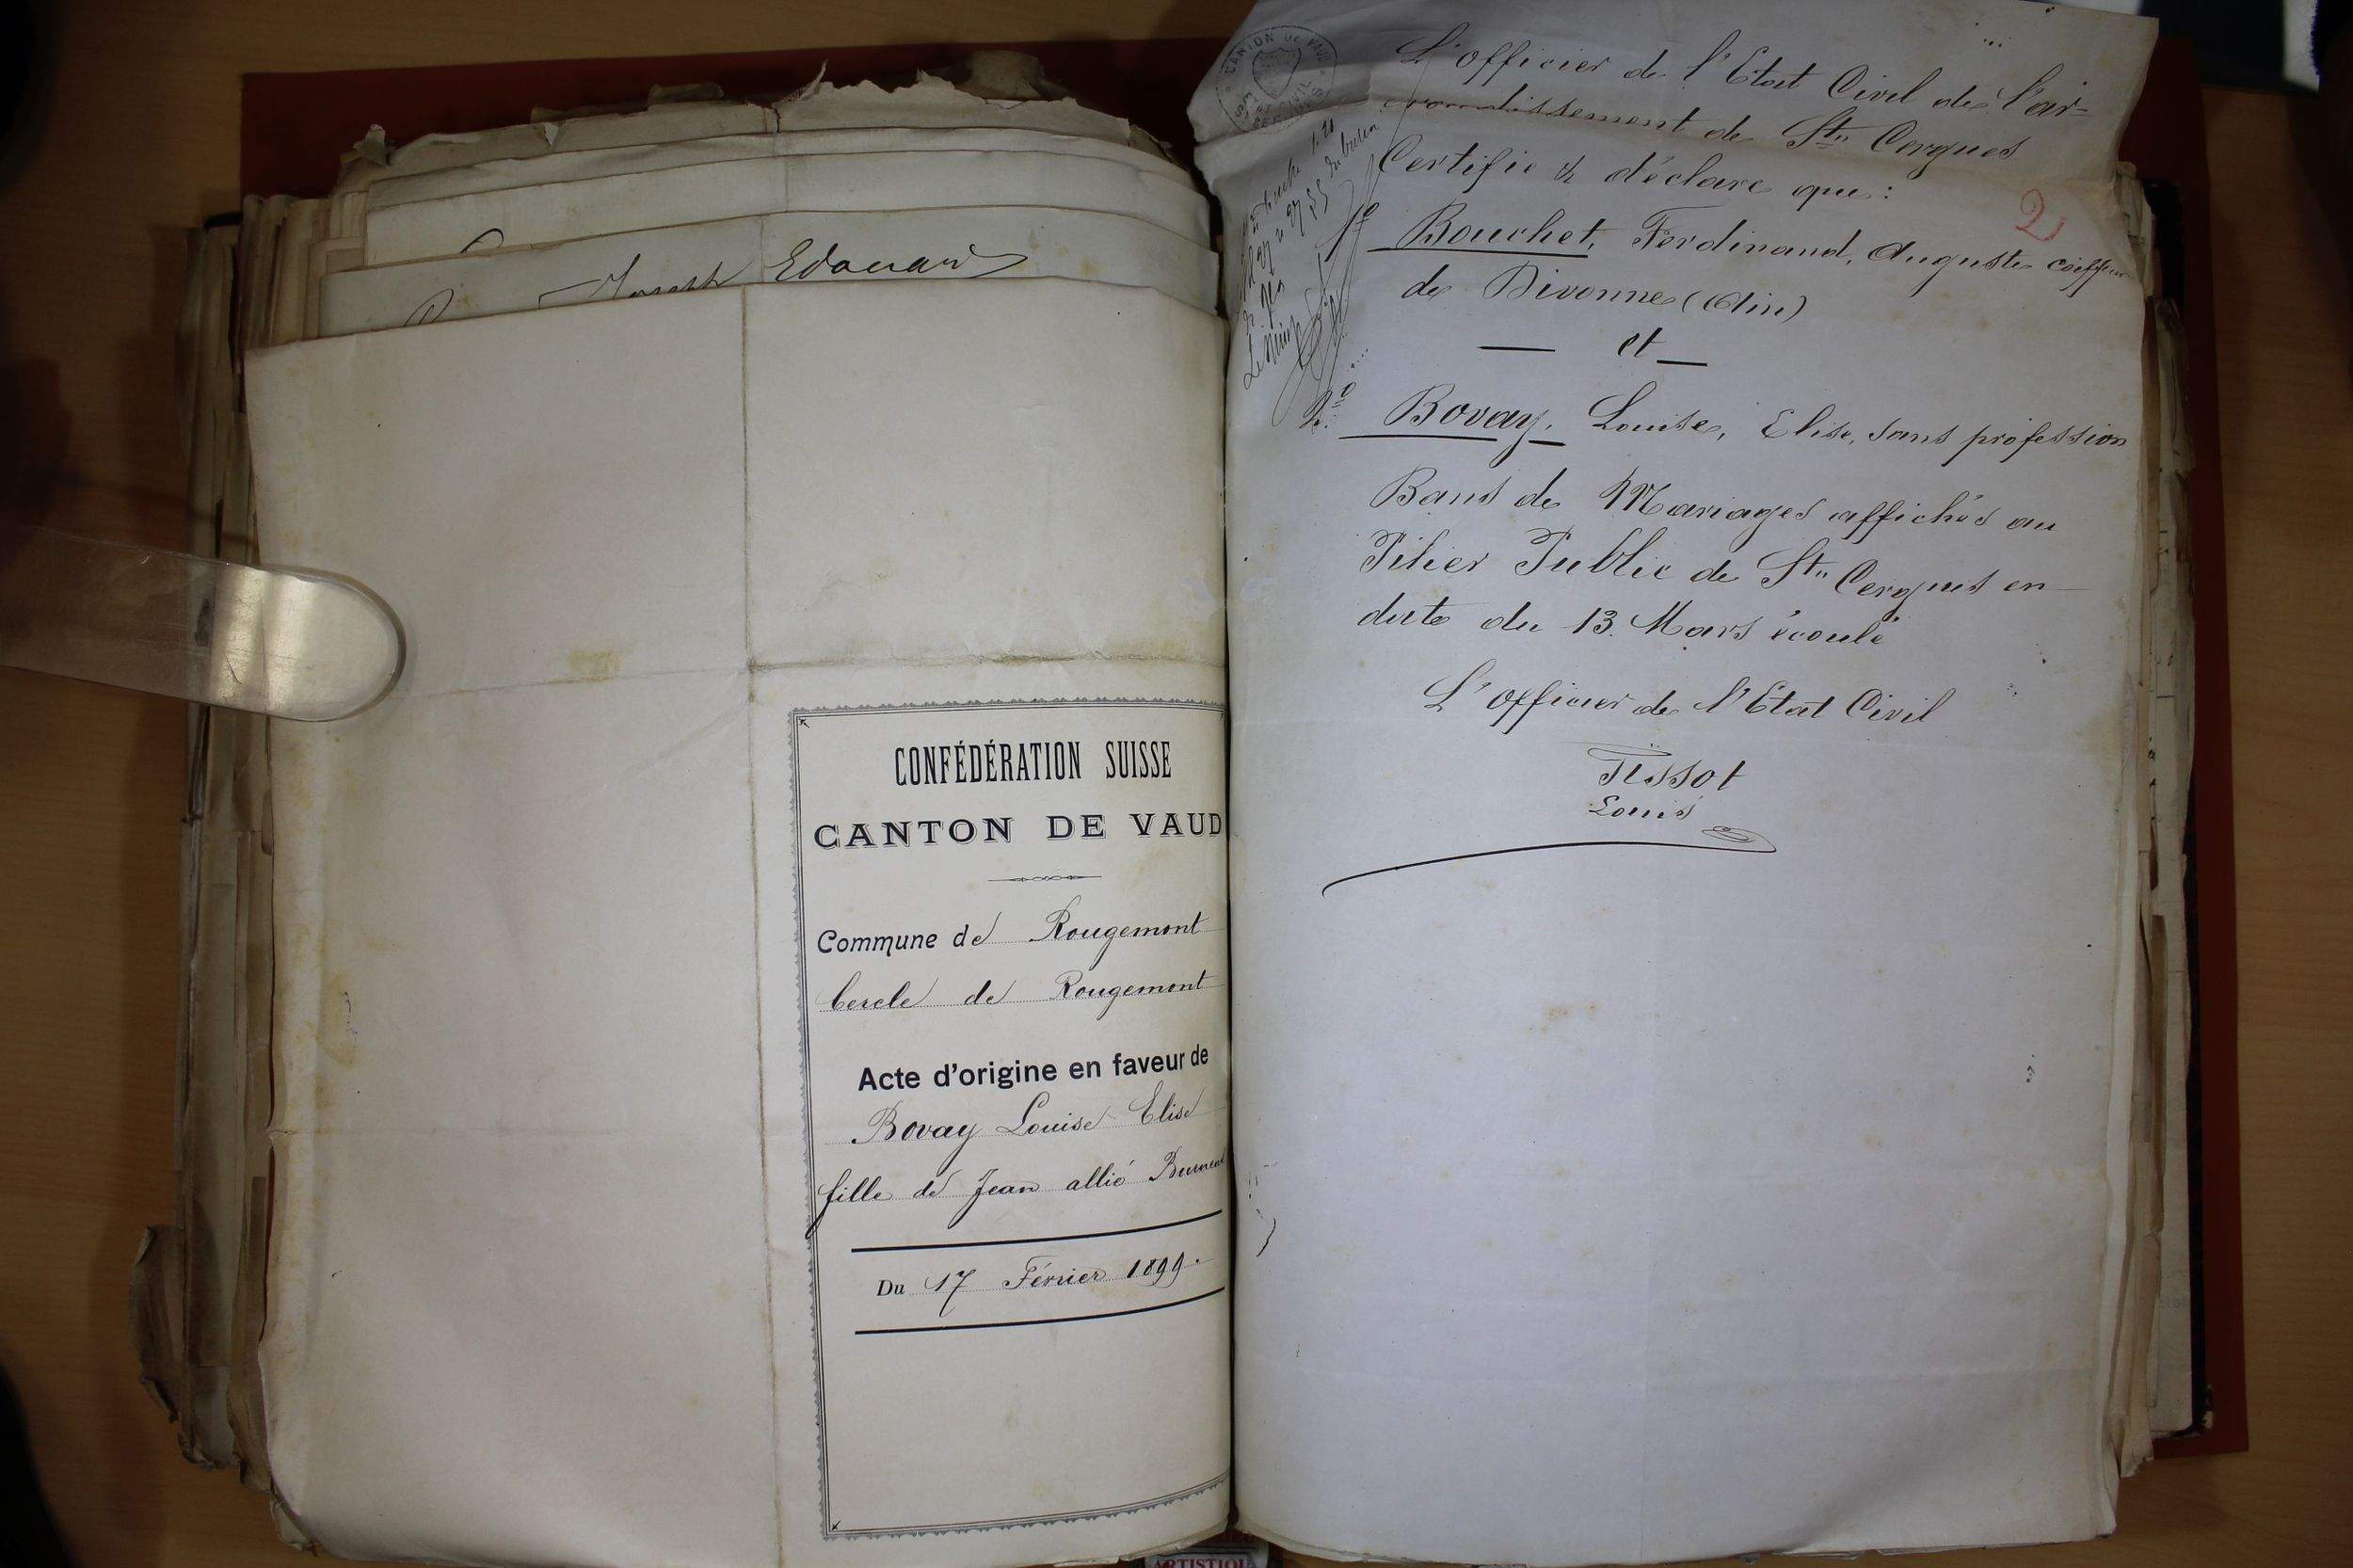 Joseph Edouard
CONFÉDÉRATION SUISSE
CANTON DE VAUD
Commune de Rougemont
Cercle de Rougemont
Acte d'origine en faveur de
Bovay Louise Elise
fille de Jean allié
Du 17 Février 1899.
CANTON DE VAUD
L'officier de l'Etat Civil de l'ar=
rondissement de St. Cergues
Certifie & déclare que:
2
1º Bouchet, Ferdinand, Auguste coiffeur
de Divonne (Ain)
— et —
2º Bovay, Louise, Elise, sans profession
Bans de Mariages affichés au
Pilier Public de St. Cergues en
date du 13. Mars écoulé
L'officier de l'Etat Civil
Tissot
Louis
ARTISTIQU